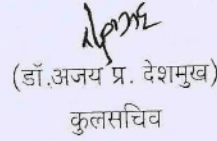 (डॉ.अजय प्र. देशमुख)
कुलसचिव